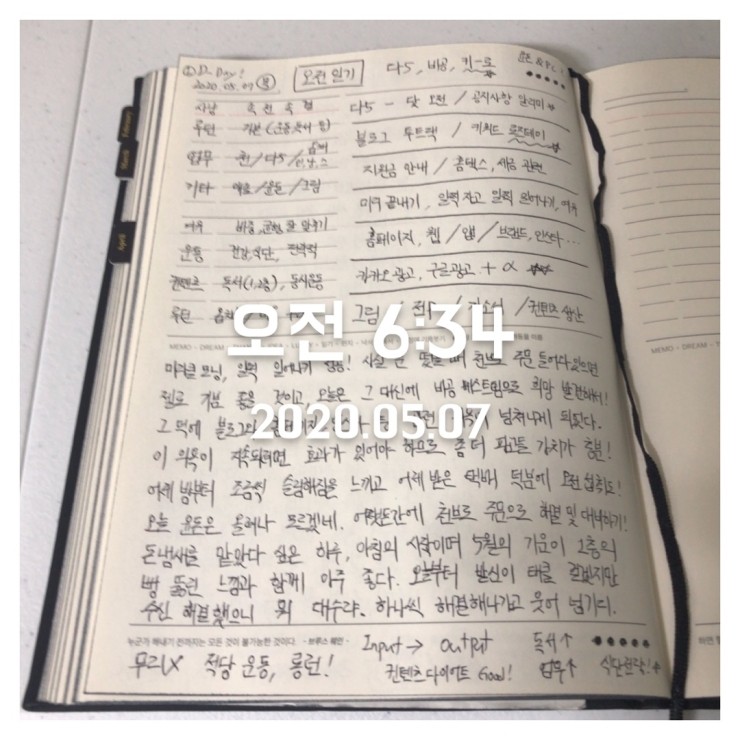 ① D-Day!
2020.05.07 목
오전 일기
다5, 바공, 키-로
폰 & PC!
사남 속전속결
루틴 기본 (운동, 독서 등)
업무 퀀/다5/
기타 애묘/운돈/그림
여유 비중, 균형 잘 맞추기
운동 건강, 식단, 전략적
컨텐츠 독서(1,2층), 동시운동
루틴
다5 - 닷 오전 / 공지사항 알리미
블로그 투트랙 / 키워드 로드데이
지원금 안내 / 홈텍스, 세금 관련
미우 끝내기, 일찍 자고 일찍 일어나기, 여유
홈페이지, 웹 / 앱 / 브랜드, 인스타...
카카오 광고, 구르광고 + α
그림 / 컨텐츠 생산
오전 6:34
MEMO · DREAM
MEMO · DREAM
미라클 모닝, 일찍 일어나기 사실 눈 떴을 때 천브로 주문 들어와 있으면
젤로 기분 좋을 것이고, 오늘은 그 대신에 바공 베스트임으로 희망 발견해서!
2020.05.07
그 덕에 블로그와 넘쳐나게 되었다.
이 의욕이 지속되려면 효과가 있어야 하므로 좀 더 파고들 가치가 충분!
어제 밤부터 조금씩 슬림해짐을 느끼고 어제 받은 택배 덕분에 오전 섭취도!
오늘 운돈은 올려나 모르겠네. 어찌됐든간에 천브로 주문으로 해결 및 대녀하기!
돈냄새를 맡았다 싶은 하루, 아침의 시작이며 5월의 기운이 1층의
뻥 뚫린 느낌과 함께 아주 좋다. 오늘부터 발신이 태클 걸었지만
수신 해결했으니 뭐 대수랴. 하나씩 해결해나가고 웃어 넘기리.
누군가 해내기 전까지는 모든 것이 불가능한 것이다. - 브루스 웨인 -
Input → output 독서↑
무리X 적당 운동, 롱런! 컨텐츠 다이어트 Good! 업무↑ 식단전략!↑